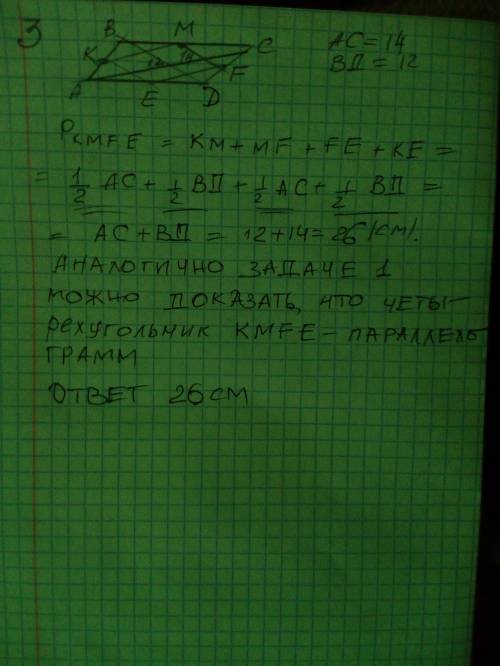 3
B M C
K 12 14
A E D F
AC = 14
ВД = 12
P KMFE = KM + MF + FE + KE =
= 1/2 AC + 1/2 ВД + 1/2 AC + 1/2 ВД =
= AC + ВД = 12 + 14 = 26 (см).
АНАЛОГИЧНО ЗАДАЧЕ 1
МОЖНО ДОКАЗАТЬ, ЧТО ЧЕТЫ-
РЕХУГОЛЬНИК KMFE – ПАРАЛЛЕЛО
ГРАММ
ОТВЕТ 26 СМ